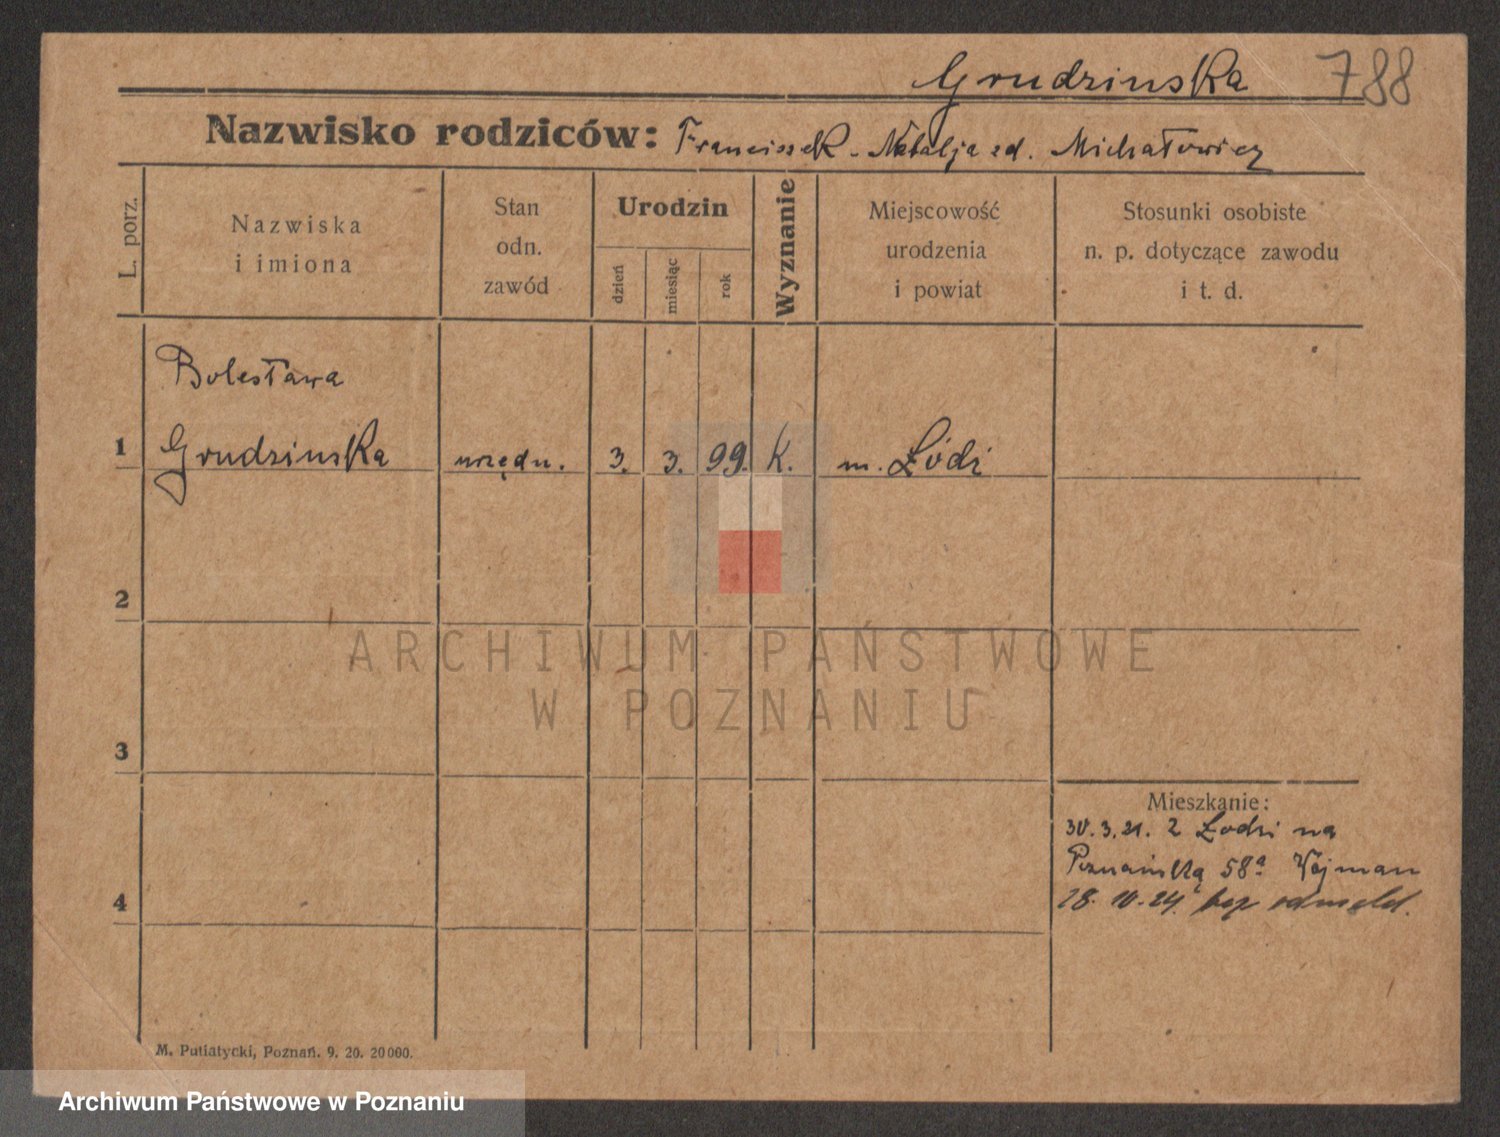 Grudzinska 788
Nazwisko rodziców: Franciszek - Natalja zd. Michałowicz
L. porz.
Nazwiska
i imiona
Stan
odn.
zawód
Urodzin
dzień
miesiąc
rok
Wyznanie
Miejscowość
urodzenia
i powiat
Stosunki osobiste
n. p. dotyczące zawodu
i t. d.
Bolesława
1 Grudzinska urzędn. 3. 3. 99. K. m. Łódź
2
ARCHIWUM PAŃSTWOWE
W POZNANIU
3
Mieszkanie:
30.3.21. z Łodzi na
Poznańską 58a Wojman
4 28.10.24.
M. Putiatycki, Poznań. 9. 20. 20000.
Archiwum Państwowe w Poznaniu